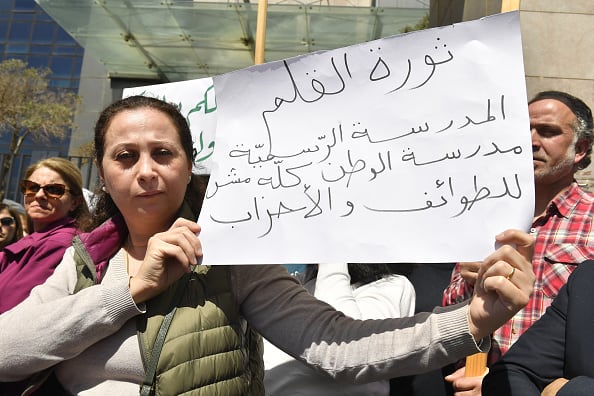 ثورة القلم
المدرسة الرّسميّة
مدرسة الوطن كلّه مش
للطوائف و الأحزاب